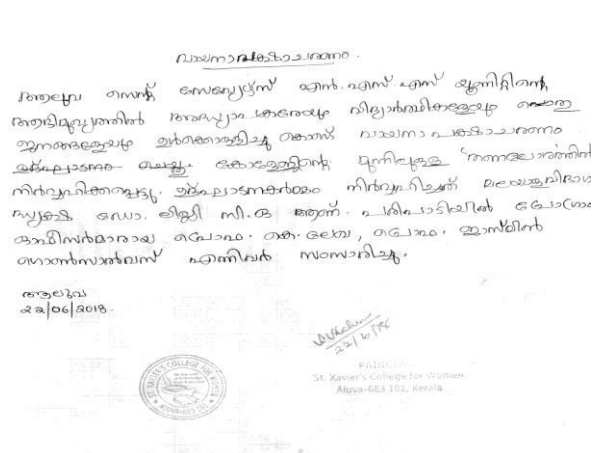 വായനാപക്ഷാചരണം.
ആലുവ സെന്റ് സേവ്യേഴ്സ് എൻ.എസ്.എസ് യൂണിറ്റിന്റെ
ആഭിമുഖ്യത്തിൽ അദ്ധ്യാപകരേയും വിദ്യാർത്ഥികളേയും പൊതു
ജനങ്ങളേയും ഉൾക്കൊള്ളിച്ചു കൊണ്ട് വായനാപക്ഷാചരണം
കോളേജിന്റെ മുന്നിലുള്ള 'തണലോരത്തിൽ
നിർവ്വഹിക്കപ്പെട്ടു. ഉദ്ഘാടനകർമ്മം നിർവ്വഹിച്ചത് മലയാളവിഭാഗ
ദ്ധ്യക്ഷ ഡോ. ലിജി സി.ഒ ആണ്. പരിപാടിയിൽ പ്രോഗ്രാം
ഓഫീസർമാരായ പ്രൊഫ. കെ. ലേഖ, പ്രൊഫ. ജാസ്മിൻ
ഗൊൺസാൽവസ് എന്നിവർ സംസാരിച്ചു.
ആലുവ
22/06/2018.
22/6/18
PRINCIPAL
St. Xavier's College for Women
Aluva-683 101, Kerala
ST. XAVIER'S COLLEGE FOR WOMEN
ALUVA-683 101